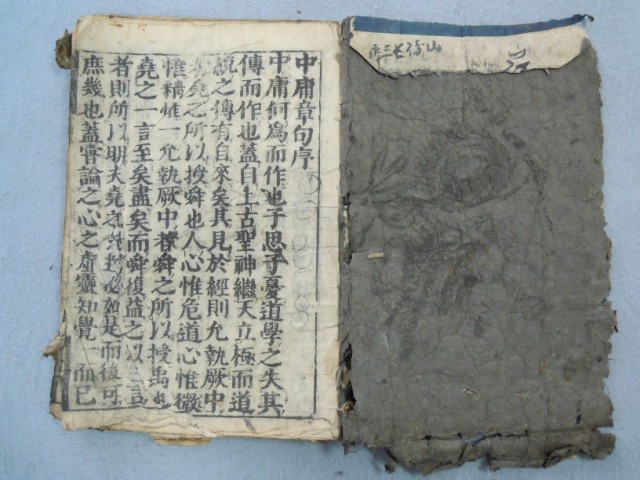 中庸章句序
中庸何爲而作也子思子憂道學之失其
傳而作也蓋自上古聖神繼天立極而道
統之傳有自來矣其見於經則允執厥中
者堯之所以授舜也人心惟危道心惟微
惟精惟一允執厥中者舜之所以授禹也
堯之一言至矣盡矣而舜復益之以三言
者則所以明夫堯之一言必如是而後可
庶幾也蓋嘗論之心之虛靈知覺一而已